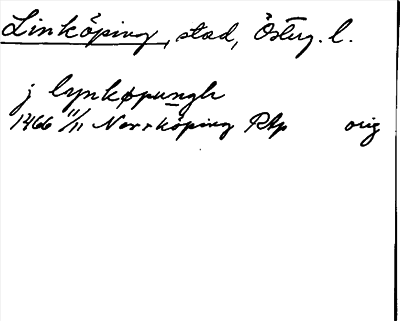 Linköping, stad, Österg. l.
j lynkøpungh
1466 11/11 Norrköping Rap orig